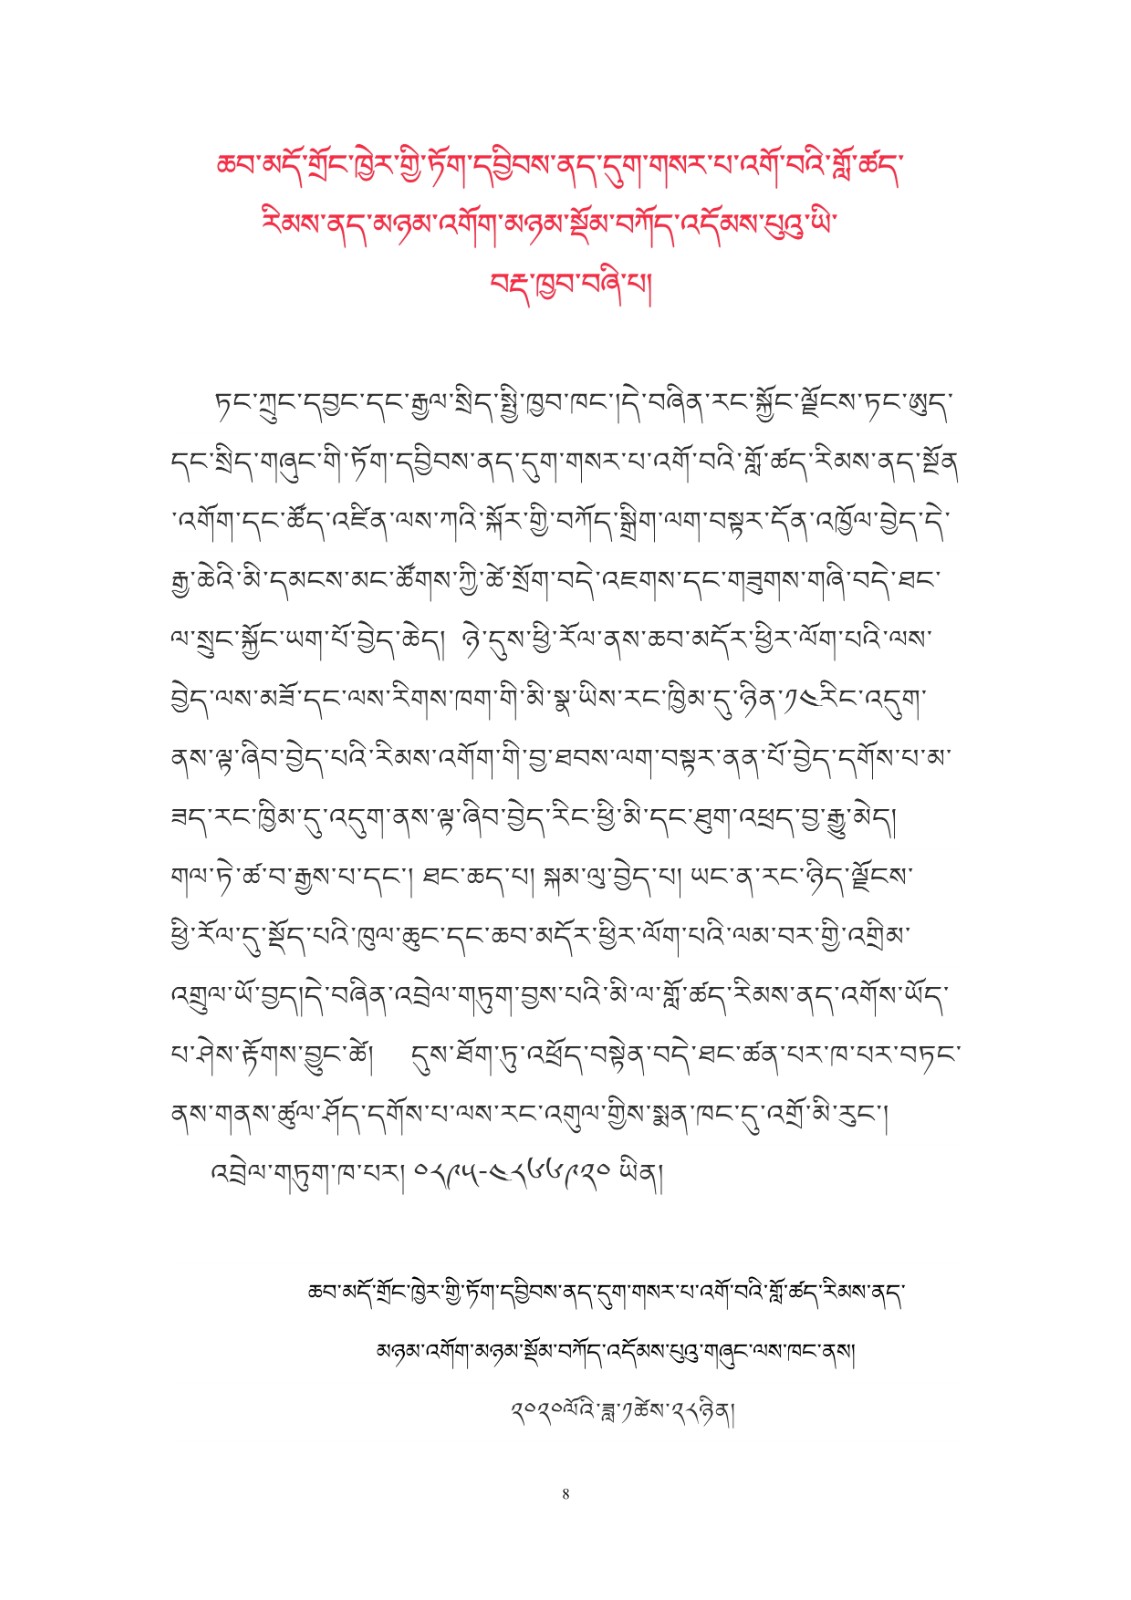 ཆབ་མདོ་གྲོང་ཁྱེར་གྱི་ཏོག་དབྱིབས་ནད་དུག་གསར་པ་འགོ་བའི་གློ་ཚད་
རིམས་ནད་མཉམ་འགོག་མཉམ་སྡོམ་བཀོད་འདོམས་པུའུ་ཡི་
བརྡ་ཁྱབ་བཞི་པ།
ཏང་ཀྲུང་དབྱང་དང་རྒྱལ་སྲིད་སྤྱི་ཁྱབ་ཁང་།དེ་བཞིན་རང་སྐྱོང་ལྗོངས་ཏང་ཨུད་
དང་སྲིད་གཞུང་གི་ཏོག་དབྱིབས་ནད་དུག་གསར་པ་འགོ་བའི་གློ་ཚད་རིམས་ནད་སྔོན
་འགོག་དང་ཚོད་འཛིན་ལས་ཀའི་སྐོར་གྱི་བཀོད་སྒྲིག་ལག་བསྟར་དོན་འཁྱོལ་བྱེད་དེ་
རྒྱ་ཆེའི་མི་དམངས་མང་ཚོགས་ཀྱི་ཚེ་སྲོག་བདེ་འཇགས་དང་གཟུགས་གཞི་བདེ་ཐང་
ལ་སྲུང་སྐྱོང་ཡག་པོ་བྱེད་ཆེད། ཉེ་དུས་ཕྱི་རོལ་ནས་ཆབ་མདོར་ཕྱིར་ལོག་པའི་ལས་
བྱེད་ལས་མཟོ་དང་ལས་རིགས་ཁག་གི་མི་སྣ་ཡིས་རང་ཁྱིམ་དུ་ཉིན་༡༤རིང་འདུག་
ནས་ལྟ་ཞིབ་བྱེད་པའི་རིམས་འགོག་གི་བྱ་ཐབས་ལག་བསྟར་ནན་པོ་བྱེད་དགོས་པ་མ་
ཟད་རང་ཁྱིམ་དུ་འདུག་ནས་ལྟ་ཞིབ་བྱེད་རིང་ཕྱི་མི་དང་ཐུག་འཕྲད་བྱ་རྒྱུ་མེད།
གལ་ཏེ་ཚ་བ་རྒྱས་པ་དང་། ཐང་ཆད་པ། སྐམ་ལུ་བྱེད་པ། ཡང་ན་རང་ཉིད་ལྗོངས་
ཕྱི་རོལ་དུ་སྡོད་པའི་ཁུལ་ཆུང་དང་ཆབ་མདོར་ཕྱིར་ལོག་པའི་ལམ་བར་གྱི་འགྲིམ་
འགྲུལ་ཡོ་བྱད།དེ་བཞིན་འབྲེལ་གཏུག་བྱས་པའི་མི་ལ་གློ་ཚད་རིམས་ནད་འགོས་ཡོད་
པ་ཤེས་རྟོགས་བྱུང་ཚེ། དུས་ཐོག་ཏུ་འཕྲོད་བསྟེན་བདེ་ཐང་ཚན་པར་ཁ་པར་བཏང་
ནས་གནས་ཚུལ་ཤོད་དགོས་པ་ལས་རང་འགུལ་གྱིས་སྨན་ཁང་དུ་འགྲོ་མི་རུང་།
འབྲེལ་གཏུག་ཁ་པར། ༠༨༩༥-༤༨༦༦༩༢༠ ཡིན།
ཆབ་མདོ་གྲོང་ཁྱེར་གྱི་ཏོག་དབྱིབས་ནད་དུག་གསར་པ་འགོ་བའི་གློ་ཚད་རིམས་ནད་
མཉམ་འགོག་མཉམ་སྡོམ་བཀོད་འདོམས་པུའུ་གཞུང་ལས་ཁང་ནས།
༢༠༢༠ལོའི་ཟླ་༡ཚེས་༢༨ཉིན།
8